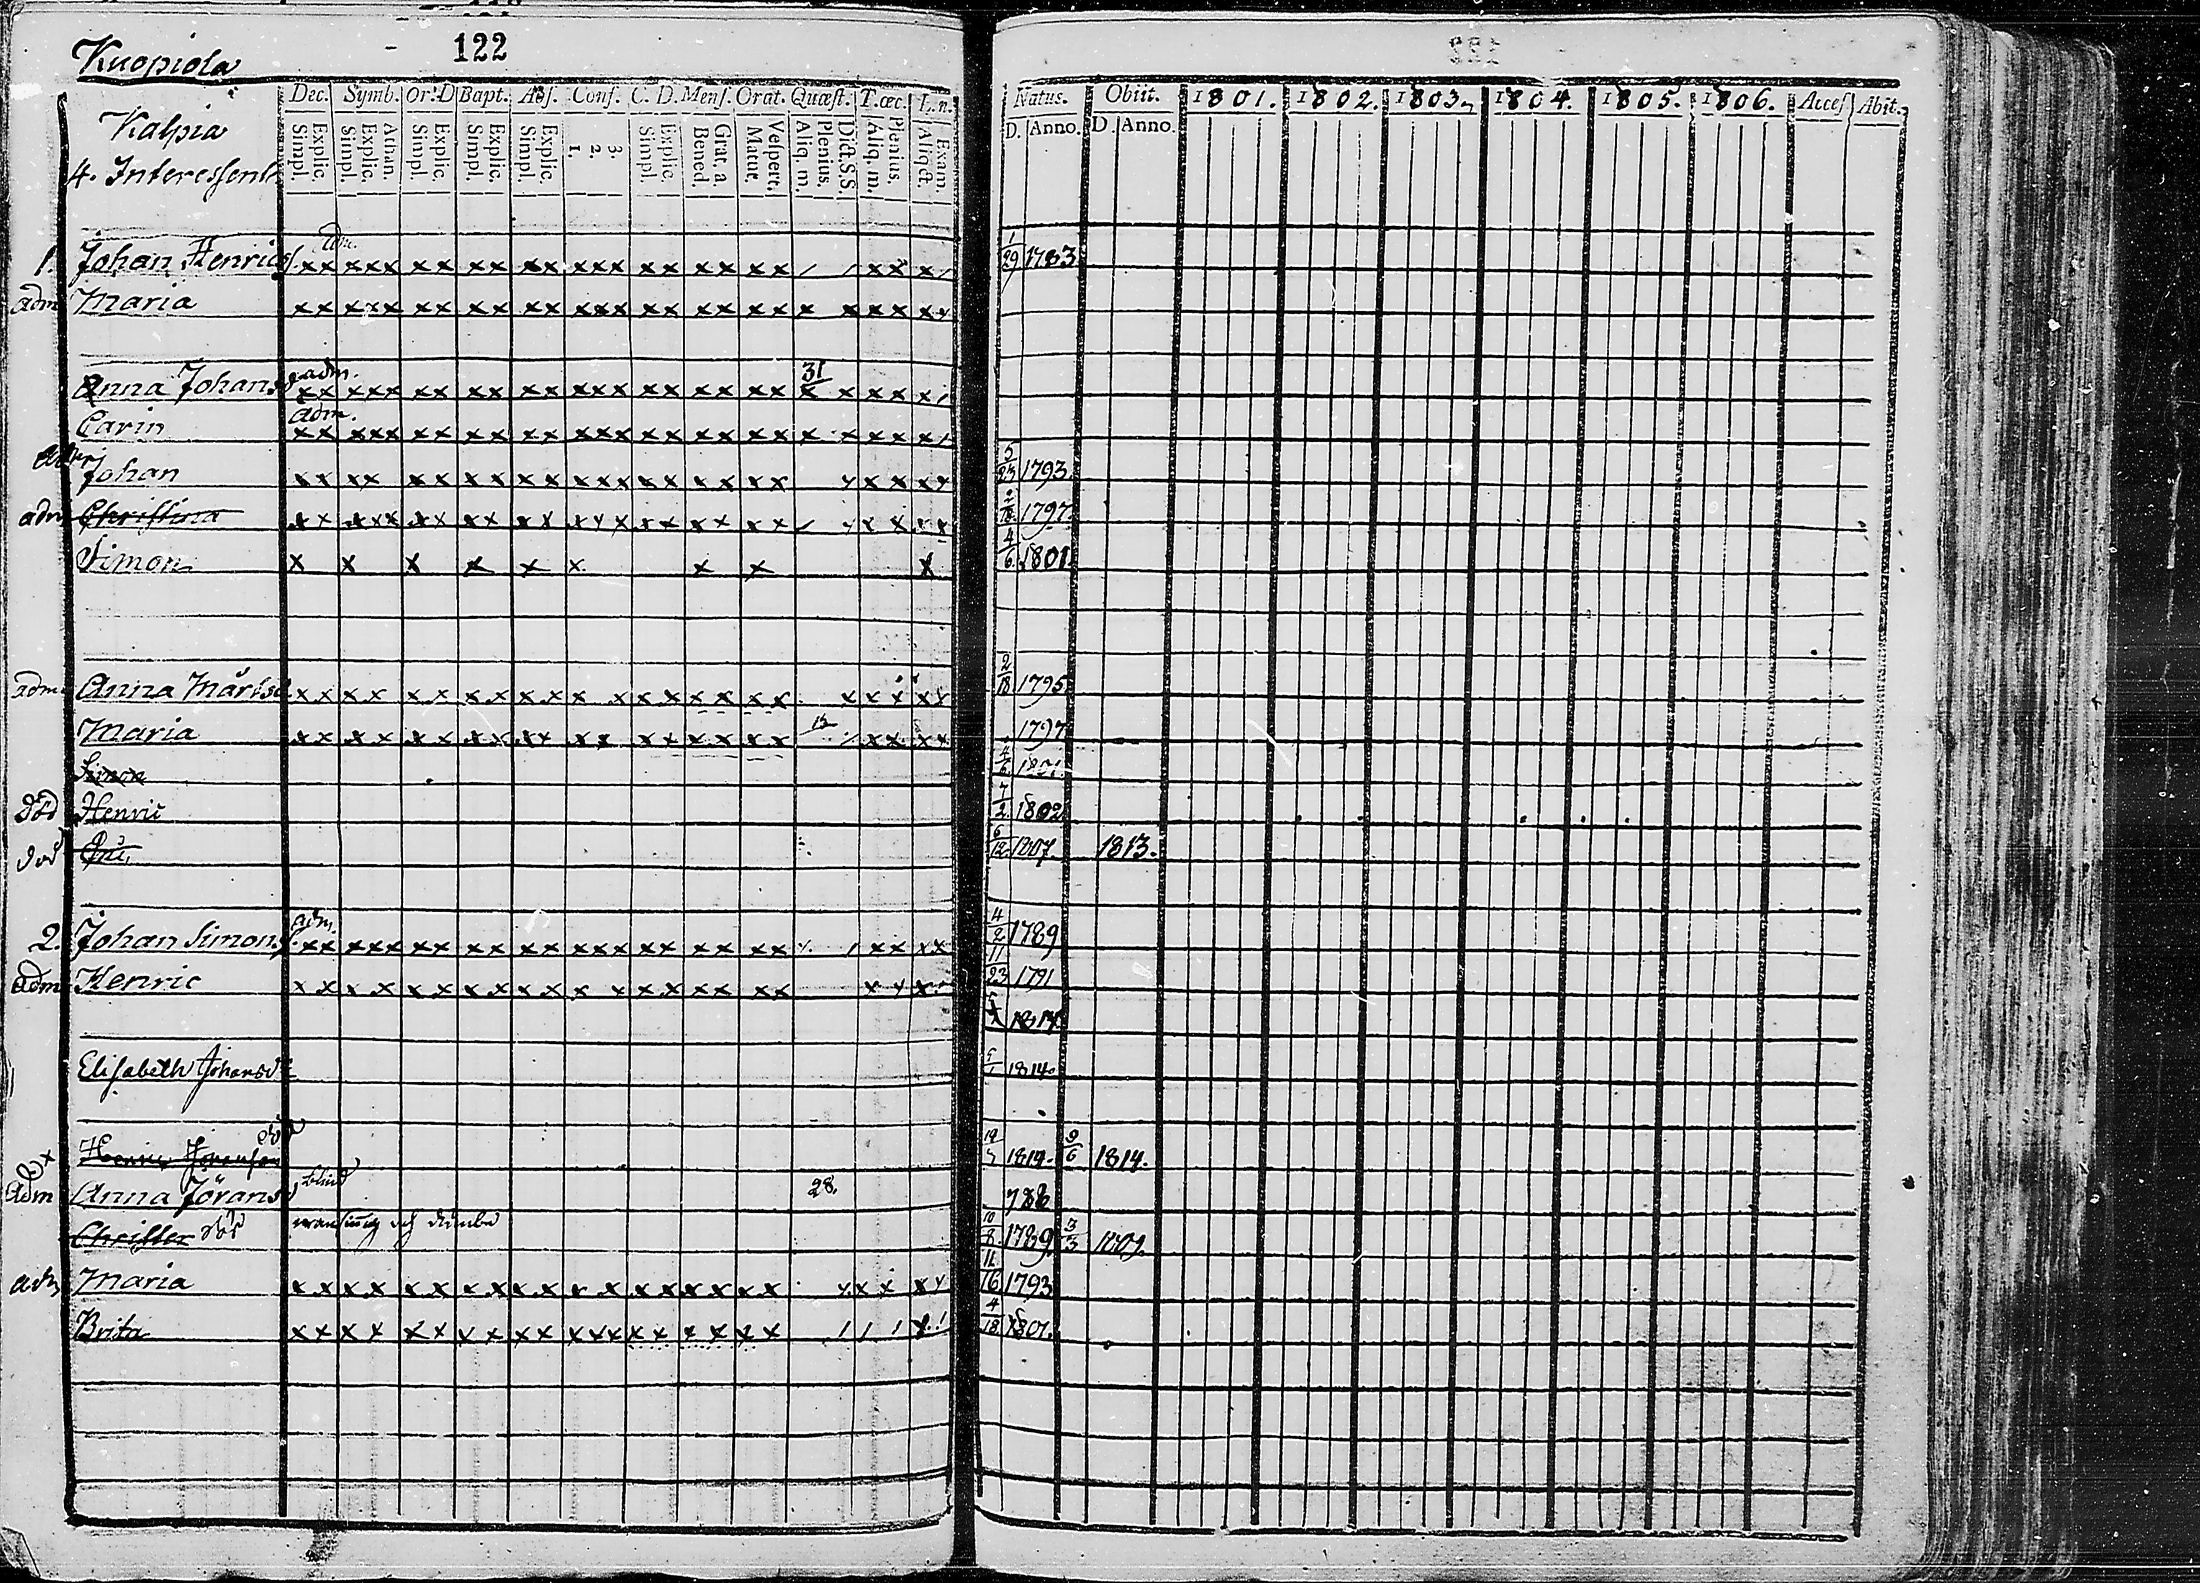 122
Kuopiola
Dec. Symb. Or. D Bapt. Abs. Conf. C. D. Mens. Orat. Quæst. T. œc. L. n.
Simpl. Explic. Simpl. Explic. Athan. Simpl. Explic. Simpl. Explic. Simpl. Explic. 1. 2. 3. Simpl. Explic. Bened. Grat. a. Matut. Vespert. Aliq. m. Plenius. Dict. S.S. Aliq. m. Plenius. Aliqct. Exam.
Natus. Obiit. 1801. 1802. 1803. 1804. 1805. 1806. Acces Abit.
D. Anno. D. Anno.
Kalpia
4. Interessent
1. Johan Henrics adm. 1/29 1783
adm Maria
Anna Johansd adm. 31
Carin adm.
adm Johan 5/23 1793
adm Christina 1797
Simon 4/6 1801
adm. Anna Mårtsd. 2/18 1795
Maria 1797
Simon 4/6 1801
död Henric 7/2 1802
död 6/12 1807. 1813.
2. Johan Simons adm. 4/2 1789
adm Henric 11/23 1791
Elisabeth Johansdr 5/1 1814
Henric Göransson död 1814. 9/6 1814.
Adm Anna Jöransd blind 28. 788
Christer död och dumbe 10/8 1789 3/3 1809.
adm Maria 11/16 1793
Brita 4/18 1801.